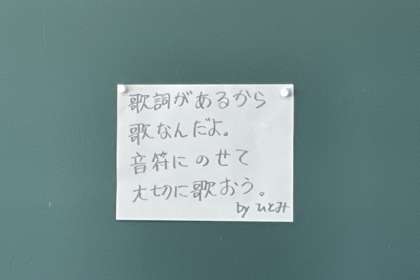 歌詞があるから
歌なんだよ。
音符にのせて
大切に歌おう。
by ひとみ